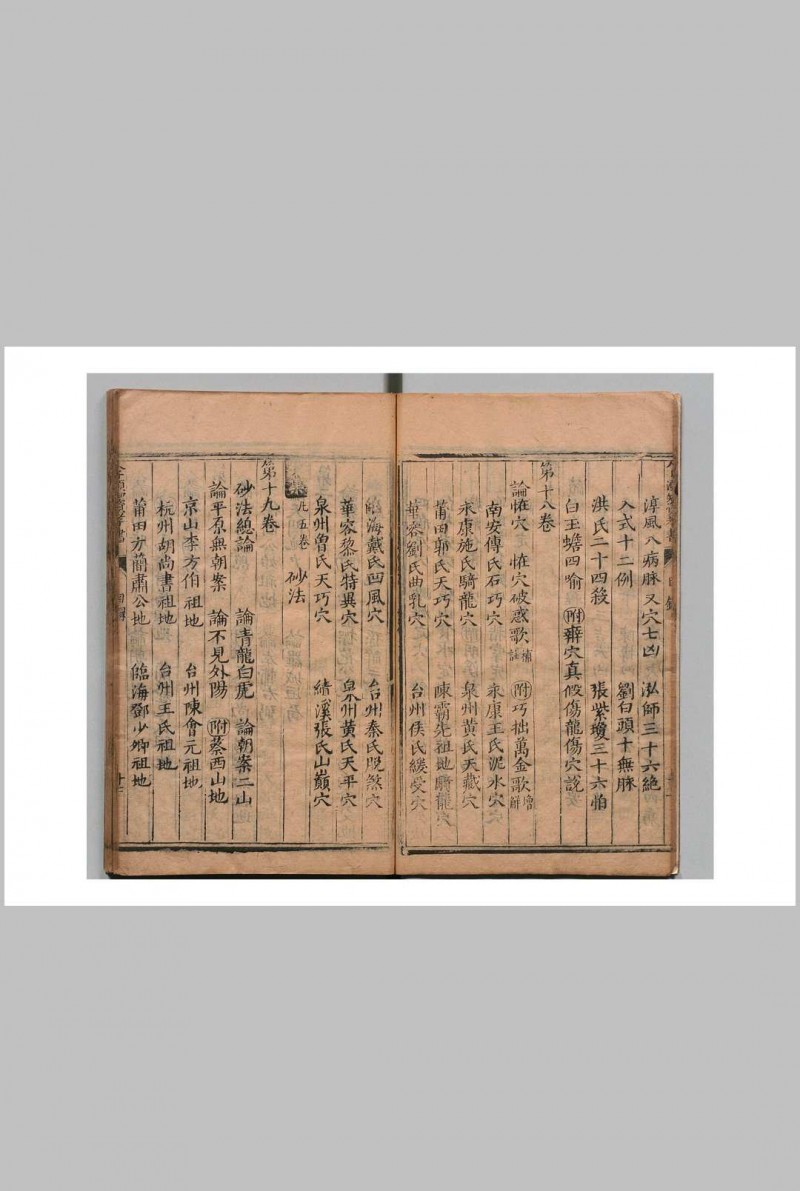 淳風八病脉又穴七凶 泓師三十六絶
入式十二例 劉白頭十無脉
洪氏二十四殺 張紫瓊三十六怕
白玉蟾四喻 附辯穴真假傷龍傷穴說
第十八卷
論恠穴 恠穴破惑歌 附巧拙萬金歌
南安傅氏石巧穴 永康王氏泥水穴
永康施氏騎龍穴 泉州黃氏天藏穴
莆田郭氏天巧穴 陳霸先祖地騎龍穴
華容劉氏曲乳穴 台州侯氏緩受穴
臨海戴氏凹風穴 台州秦氏脫煞穴
華容黎氏特異穴 泉州黃氏天平穴
泉州曾氏天巧穴 績溪張氏山巔穴
集 此五卷 砂法
第十九卷
砂法總論 論青龍白虎 論朝案二山
論平原無朝案 論不見外陽 附蔡西山地
京山李方伯祖地 台州陳會元祖地
杭州胡尚書祖地 台州王氏祖地
莆田方簡肅公地 臨海鄧少卿祖地